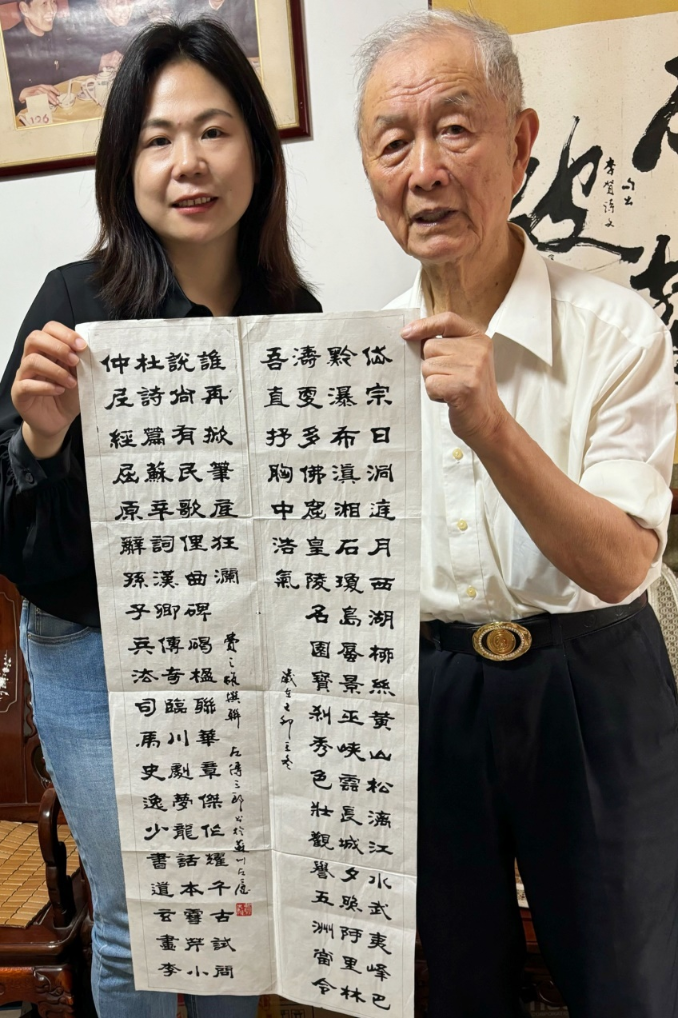 岱宗日洞庭月西湖柳絲黃山松漓江水武夷峰巴
黔瀑布滇湘石瓊島蜃景巫峽雲長城夕照阿里林
濤更多佛窟皇陵名園寶刹秀色壯觀譽五洲當令
吾直抒胸中浩氣
歲在卯冬
仲尼經屈原辭孫子兵法司馬史逸少書道玄畫李
杜詩篇蘇辛詞漢卿傳奇臨川劇夢龍話本雪芹小
說尚有民歌俚曲碑碣楹聯華章傑作耀千古試問
誰再掀筆底狂瀾
費之雄撰聯
三郎書於蘇州左廬
李賀詩文